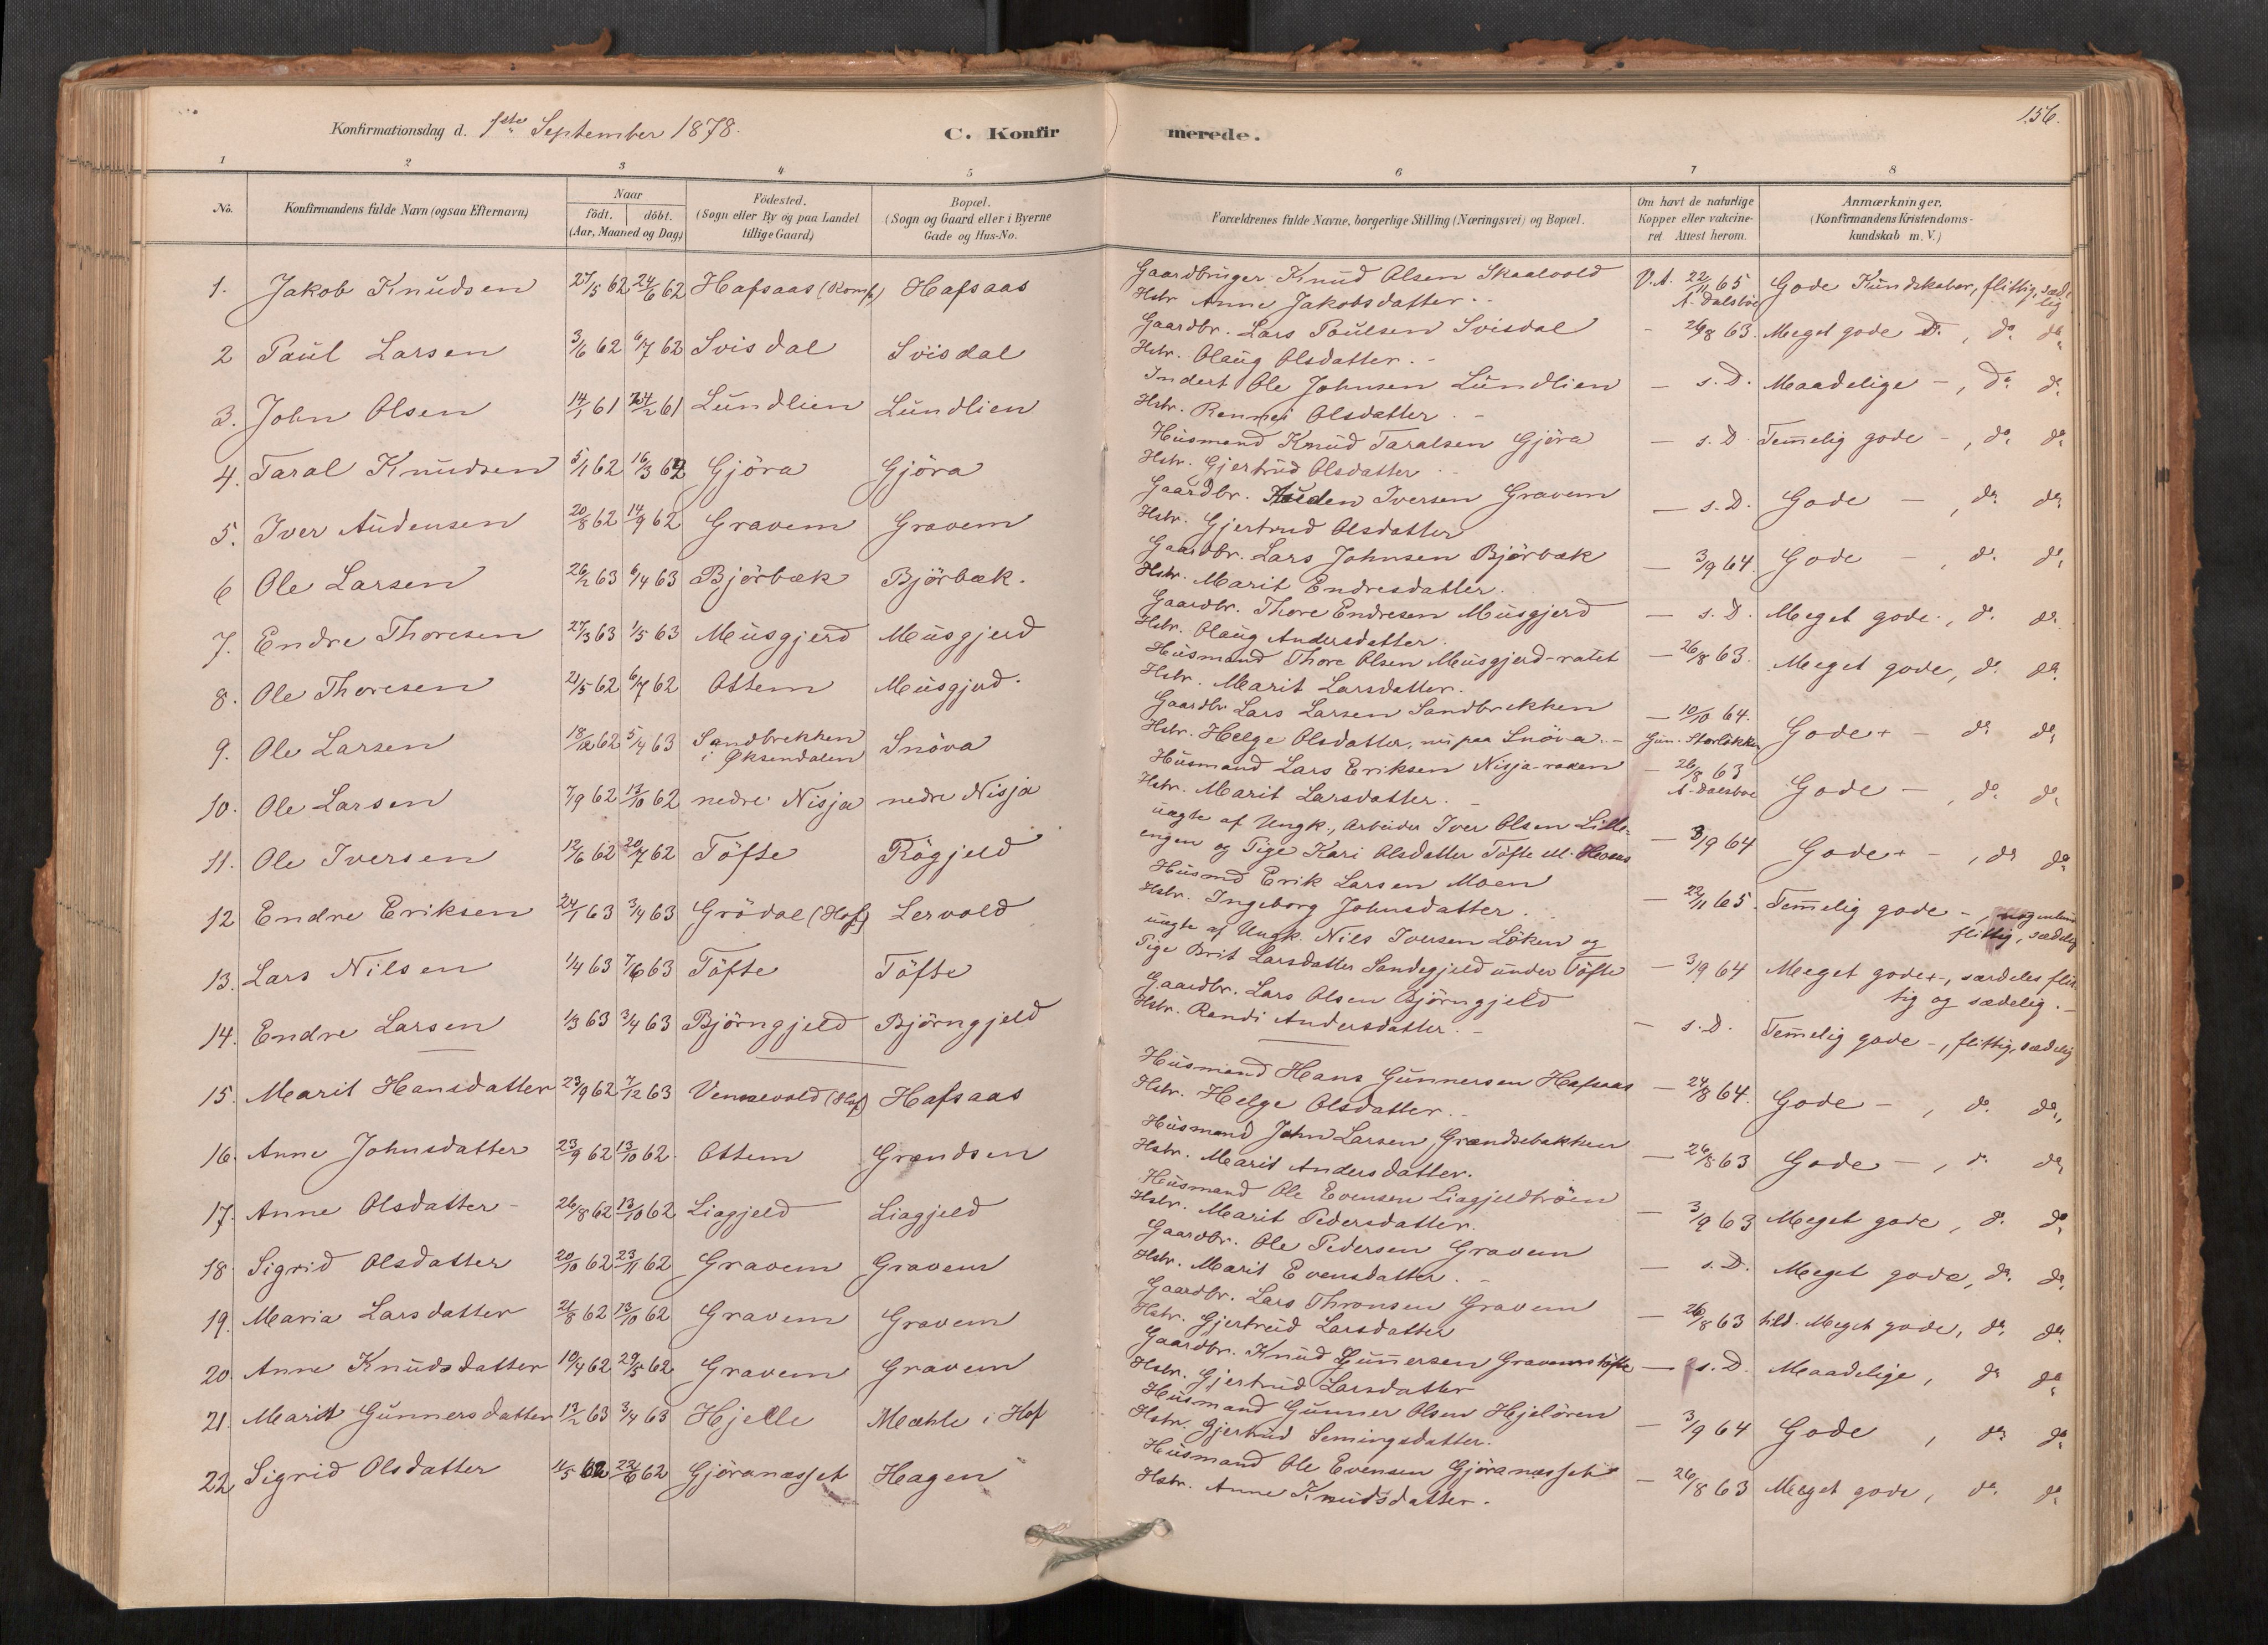 156.
Konfirmationsdag d. 1ste September 1878. C. Konfirmerede.
1 2 3 4 5 6 7 8
No. Konfirmandens fulde Navn (ogsaa Efternavn) Naar födt. döbt. (Aar, Maaned og Dag) Födested. (Sogn eller By og paa Landet tillige Gaard) Bopæl. (Sogn og Gaard eller i Byerne Gade og Hus-No. Forældrenes fulde Navne, borgerlige Stilling (Næringsvei) og Bopæl. Om havt de naturlige Kopper eller vakcineret. Attest herom. Anmærkninger. (Konfirmandens Kristendomskundskab m. V.)
1. Jakob Knudsen 27/5 62 24/6 62 Hafsaas (Romf.) Hafsaas Gaardbruger Knud Olsen Skaalvold V.A. 22/11 65 Gode Kundskaber, flittig, sædelig
Hstr Anne Jakobsdatter. - A. Dalsboe
2 Paul Larsen 3/6 62 6/7 62 Svisdal Svisdal Gaardbr. Lars Poulsen Svisdal - 26/8 63. Meget gode D., do. do.
Hstr. Olaug Olsdatter. -
3. John Olsen 14/1 61 24/2 61 Lundlien Lundlien Inderst Ole Johnsen Lundlien - s. D. Maadelige -, do do
Hstr. Olsdatter. -
4. Taral Knudsen 5/1 62 16/3 62 Gjöra Gjöra Husmand Knud Taralsen Gjöra - s. D. Temelig gode -, do. do.
Hstr. Gjertrud Olsdatter -
5. Iver Audensen 20/8 62 14/9 62 Gravem Gravem Gaardbr. Auden Iversen Gravem - s. D. Gode -, do. do.
Hstr. Gjertrud Olsdatter
6 Ole Larsen 26/2 63 6/4 63 Björbæk Björbæk. Gaardbr. Lars Johnsen Björbæk - 3/9 64. Gode -, do. do.
Hstr. Marit Endresdatter.
7. Endre Thoresen 27/3 63 1/5 63 Musgjerd Musgjerd Gaardbr. Thore Endresen Musgjerd - s. D. Meget gode., do. do.
Hstr. Olaug Andersdatter.
8. Ole Thoresen 21/5 62 6/7 62 Ottem Musgjerd. Husmand Thore Olsen Musgjerd- - 26/8 63. Meget gode, do. do.
Hstr. Marit Larsdatter.
9. Ole Larsen 18/12 62 5/4 63 Sandbrekken i Øksendalen Snöva Gaardbr Lars Larsen Sandbrekken - 10/10 64. Gode + - do do.
Hstr. Helge Olsdatter, nu paa Snöva. - Gun. Storløkken
10. Ole Larsen 7/9 62 13/10 62 nedre Nisja nedre Nisja Husmand Lars Eriksen Nisja- - 26/8 63 Gode -, do. do.
Hstr. Marit Larsdatter. - A. Dalsboe
11. Ole Iversen 12/6 62 20/7 62 Töfte Rögjeld uægte af Ungk., Arbeider Iver Olsen Lille- - 3/9 64 Gode + -, do do
engen og Pige Kari Olsdatter Töfte
12 Endre Eriksen 24/1 63 3/4 63 Grödal (Hof) Lervold Husmd Erik Larsen Moen - 22/11 65. Temelig gode -, nogenlunde flittig, sædelig
Hstr. Ingeborg Johnsdatter.
13. Lars Nilsen 1/4 63 7/6 63 Töfte Töfte uægte af Ungk. Nils Iversen Löken og - 3/9 64 Meget gode + -, særdeles flittig og sædelig. -
Pige Brit Larsdatter Sandegjeld under Töfte
14. Endre Larsen 1/3 63 3/4 63 Björngjeld Björngjeld Gaardbr. Lars Olsen Björngjeld - s. D. Temelig gode -, flittig, sædelig
Hstr. Randi Andersdatter. -
15. Marit Hansdatter 23/9 62 7/12 63 Vennevold (Hof) Hafsaas Husmand Hans Gunnersen Hafsaas - 24/8 64. Gode -, do. do.
Hstr. Helge Olsdatter. -
16. Anne Johnsdatter 23/9 62 13/10 62. Ottem Grændsen Husmand John Larsen Grændsebakken - 26/8 63 Gode -, do. do.
Hstr. Marit Andersdatter.
17. Anne Olsdatter - 26/8 62 13/10 62 Liagjeld Liagjeld Husmand Ole Evensen Liagjeldtröen - 3/9 63 Meget gode, do. do.
Hstr. Marit Pedersdatter.
18. Sigrid Olsdatter 20/10 62 23/11 62 Gravem Gravem Gaardbr. Ole Pedersen Gravem - s. D. Meget gode, do. do.
Hstr. Marit Evensdatter. -
19. Maria Larsdatter 21/8 62 13/10 62 Gravem Gravem Gaardbr. Lars Thronsen Gravem - 26/8 63 tild. Meget gode, do. do.
Hstr. Gjertrud Larsdatter
20. Anne Knudsdatter 10/4 62 29/5 62 Gravem Gravem Gaardbr. Knud Gunnersen Gravemstöfte - s. D. Maadelige, do do.
Hstr. Gjertrud Larsdatter
21. Marit Gunnersdatter 13/2 63 3/4 63 Hjelle Mæhle i Hof Husmand Gunner Olsen Hjelören - 3/9 64 Gode, do do.
Hstr. Gjertrud Semingsdatter.
22 Sigrid Olsdatter 11/5 62 22/6 62 Gjöranæsset Hagen Husmand Ole Evensen Gjöranæsset - 26/8 63 Meget gode, do. do.
Hstr. Anne Knudsdatter.